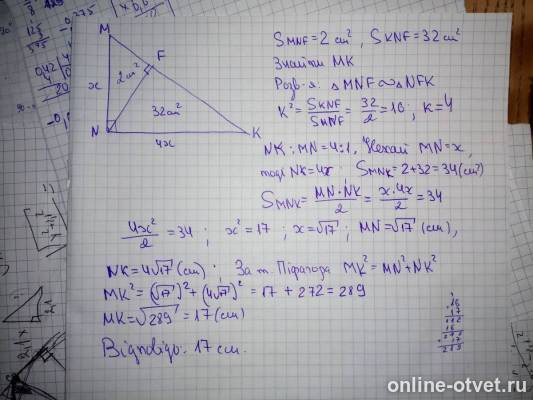 M
F
x
2 см²
32 см²
N
4x
K
S MNF = 2 см², S KNF = 32 см²
Знайти MK
Розв-я: △MNF ∾ △NFK
K² = S KNF / S MNF = 32/2 = 16; k = 4
NK : MN = 4:1. Нехай MN = x,
тоді NK = 4x, S MNK = 2+32 = 34 (см²)
S MNK = MN·NK / 2 = x·4x / 2 = 34
4x²/2 = 34; x² = 17; x = √17; MN = √17 (см),
NK = 4√17 (см); За т. Піфагора MK² = MN² + NK²
MK² = (√17)² + (4√17)² = 17 + 272 = 289
MK = √289 = 17 (см)
Відповідь: 17 см.
16
17
112
16
272
17
289
online-otvet.ru